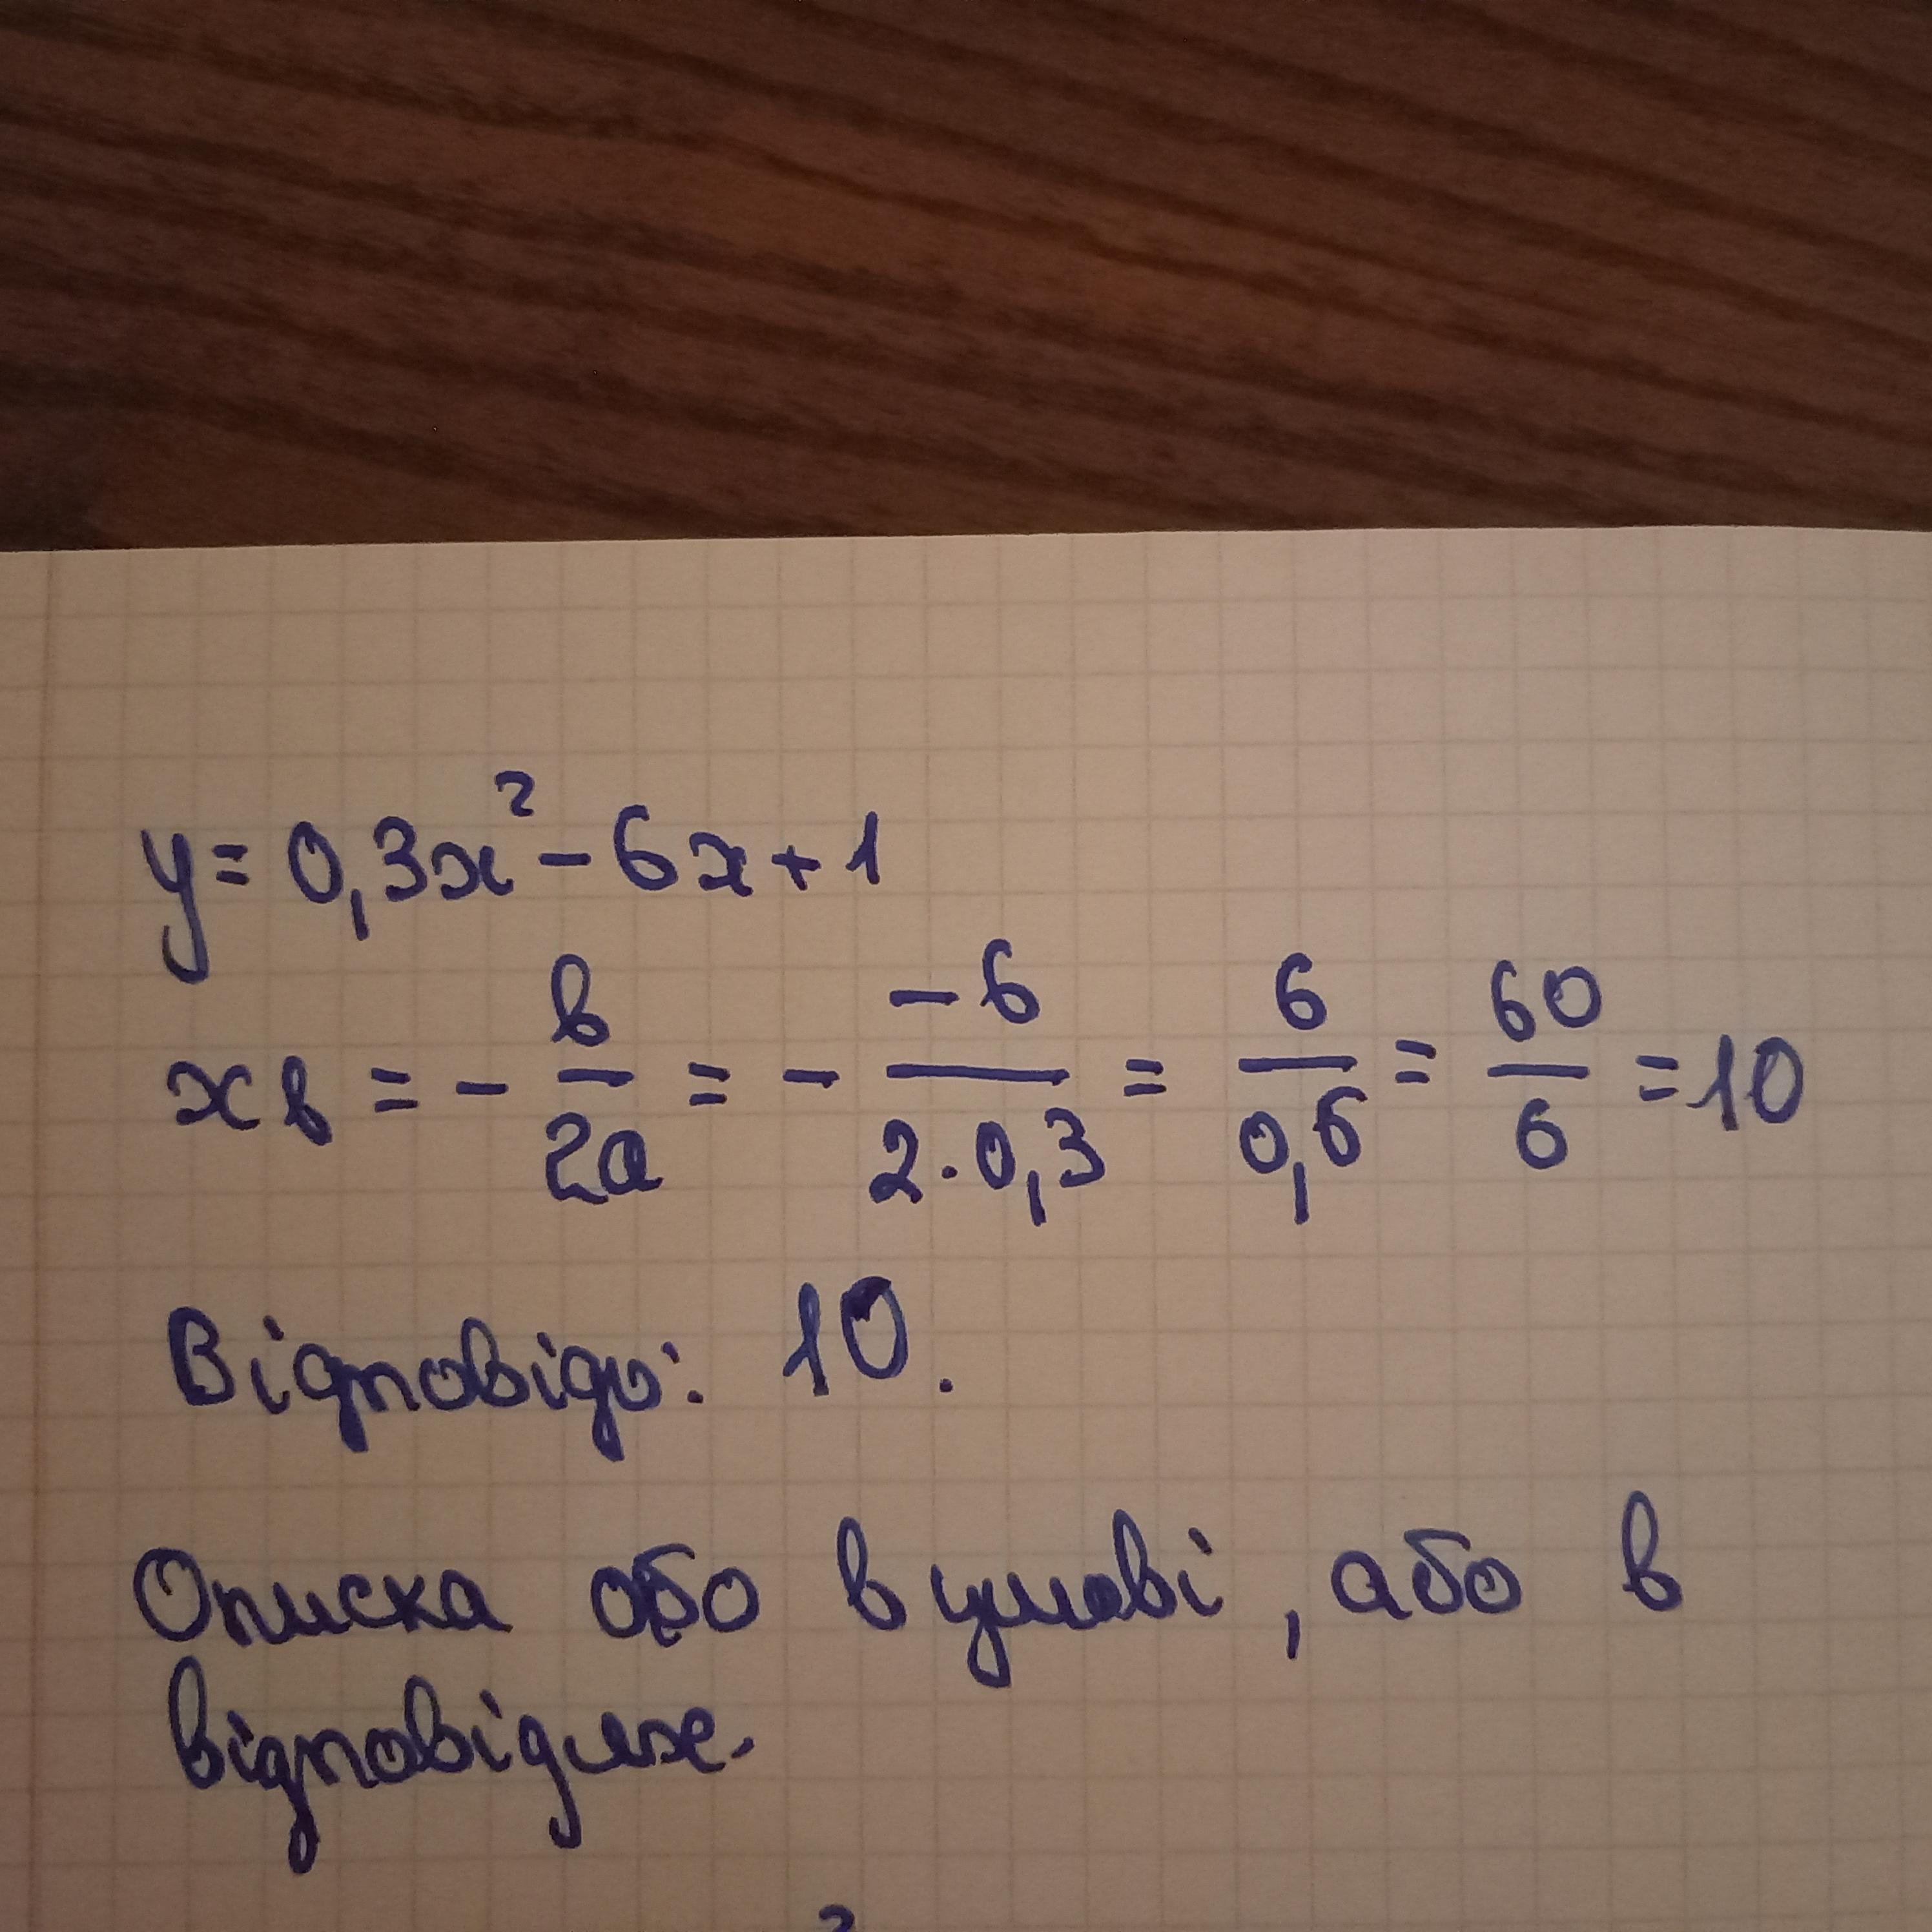 y = 0,3x² - 6x + 1
xв = - в/2a = - -6/2·0,3 = 6/0,6 = 60/6 = 10
Відповідь: 10.
Описка або в умові, або в
відповідях.
2